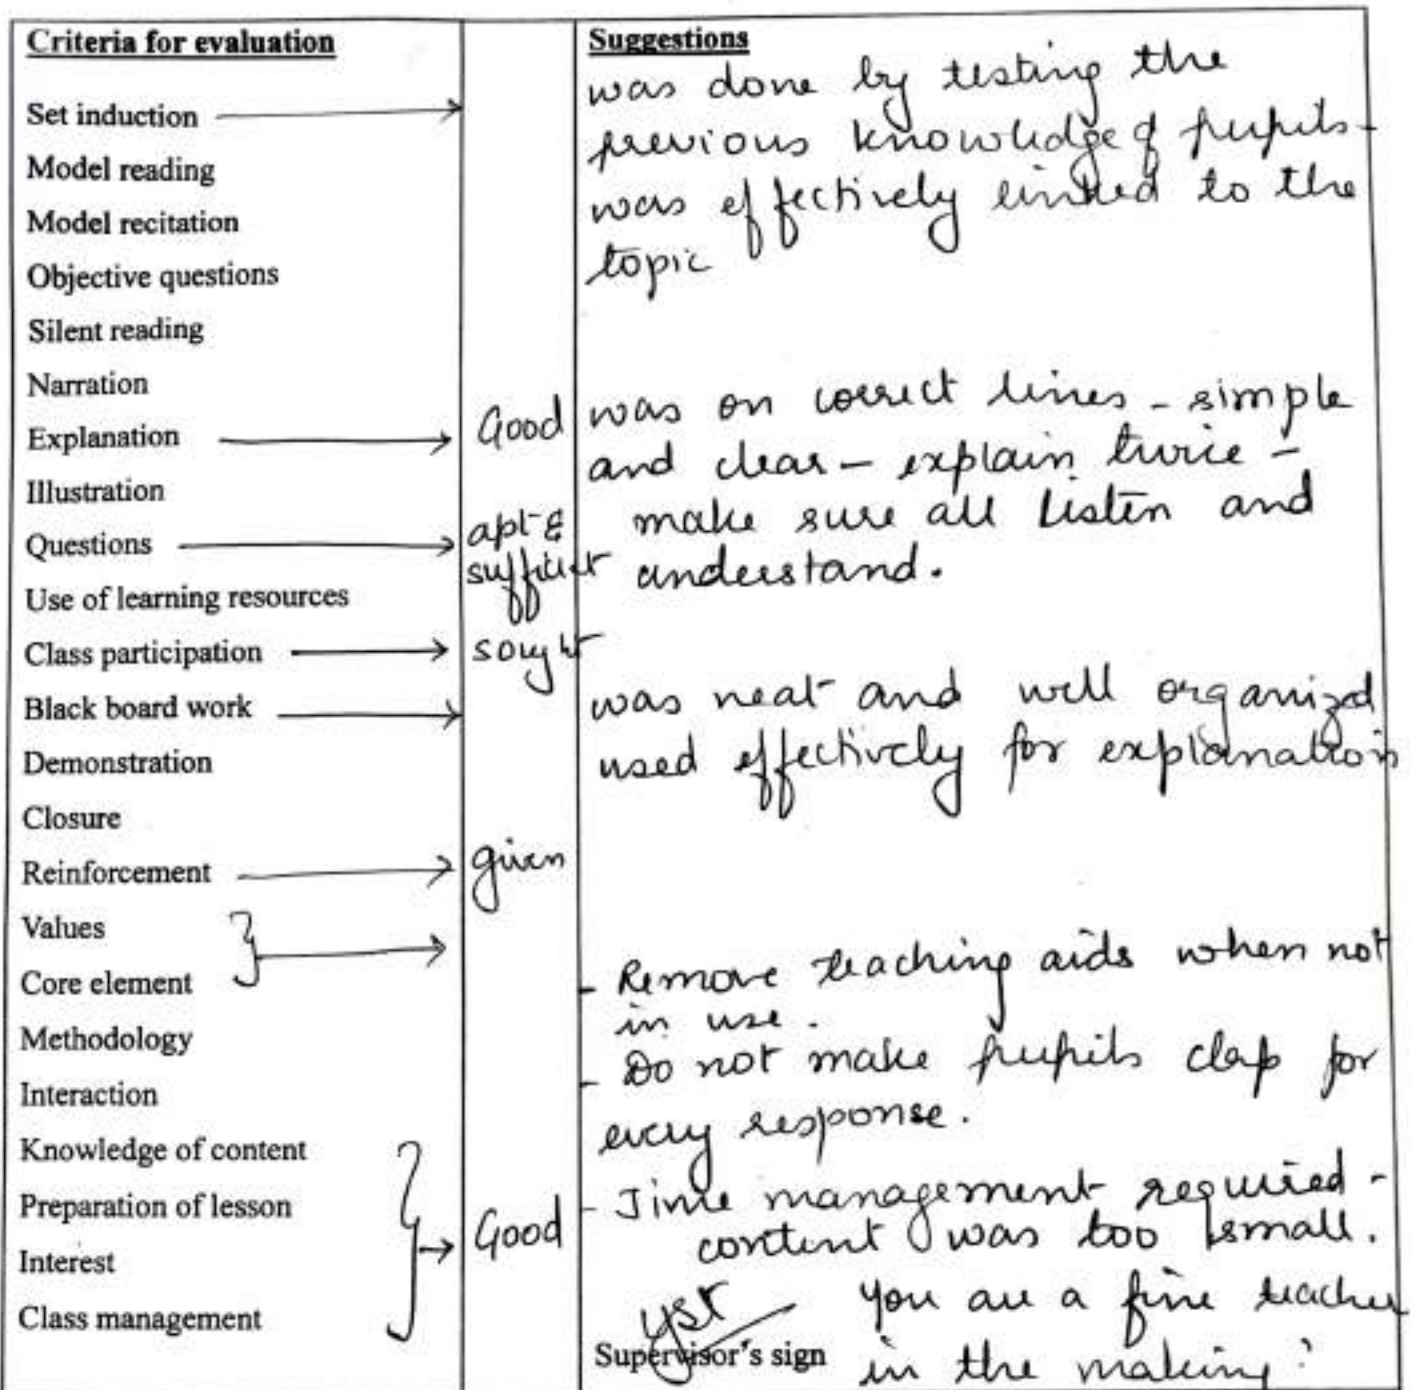 Criteria for evaluation
Set induction
Model reading
Model recitation
Objective questions
Silent reading
Narration
Explanation
Illustration
Questions
Use of learning resources
Class participation
Black board work
Demonstration
Closure
Reinforcement
Values
Core element
Methodology
Interaction
Knowledge of content
Preparation of lesson
Interest
Class management
Good
apt &
sufficient
sought
given
Good
Suggestions
was done by testing the
previous knowledge of pupils -
was effectively linked to the
topic
was on correct lines - simple
and clear - explain twice -
make sure all listen and
understand.
was neat and well organized
used effectively for explanation
- Remove teaching aids when not
in use.
- Do not make pupils clap for
every response.
- Time management required -
content was too small.
You are a fine teacher
Supervisor's sign in the making!